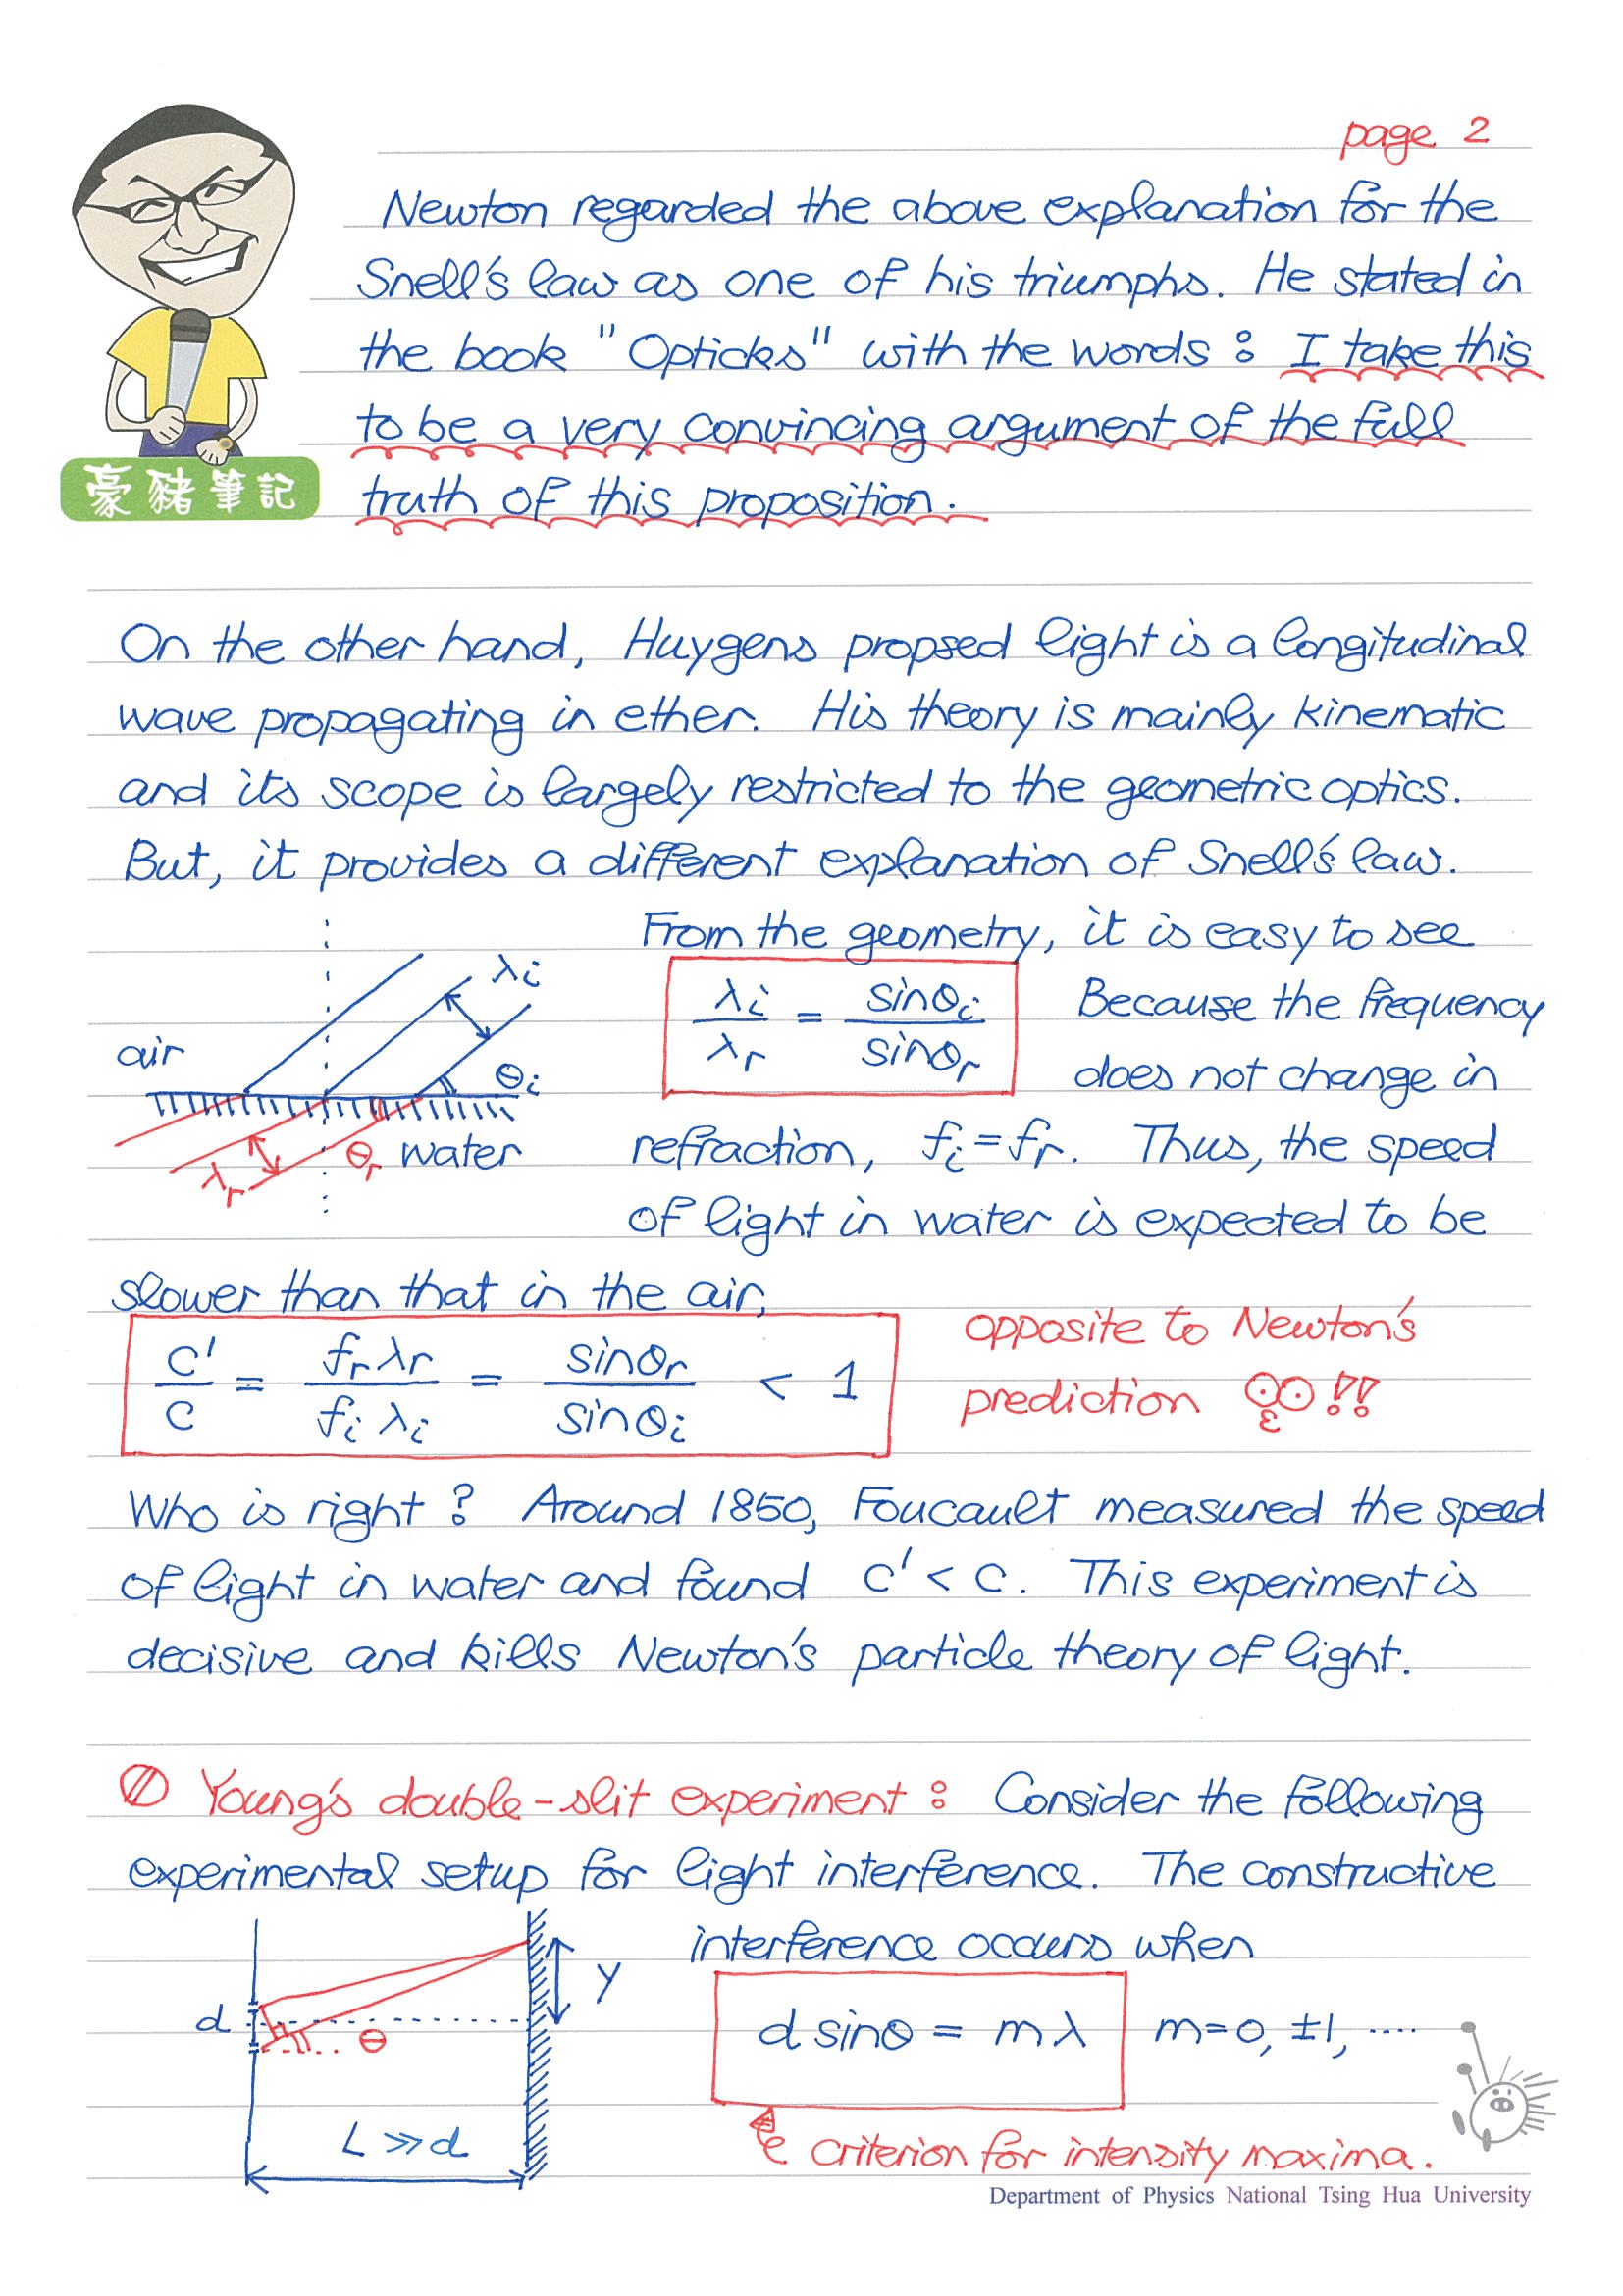 page 2
Newton regarded the above explanation for the
Snell's law as one of his triumphs. He stated in
the book "Opticks" with the words : I take this
to be a very convincing argument of the full
truth of this proposition.
豪豬筆記
On the other hand, Huygens propsed light is a longitudinal
wave propagating in ether. His theory is mainly kinematic
and its scope is largely restricted to the geometric optics.
But, it provides a different explanation of Snell's law.
From the geometry, it is easy to see
λi
air
θi
θr water
λr
λi/λr = sinθi/sinθr
Because the frequency
does not change in
refraction, fi = fr. Thus, the speed
of light in water is expected to be
slower than that in the air,
c'/c = frλr/fiλi = sinθr/sinθi < 1
opposite to Newton's
prediction !!
Who is right ? Around 1850, Foucault measured the speed
of light in water and found c' < c. This experiment is
decisive and kills Newton's particle theory of light.
Young's double-slit experiment : Consider the following
experimental setup for light interference. The constructive
interference occurs when
d
θ
y
L ≫ d
d sinθ = mλ m=0, ±1, ....
criterion for intensity maxima.
Department of Physics National Tsing Hua University